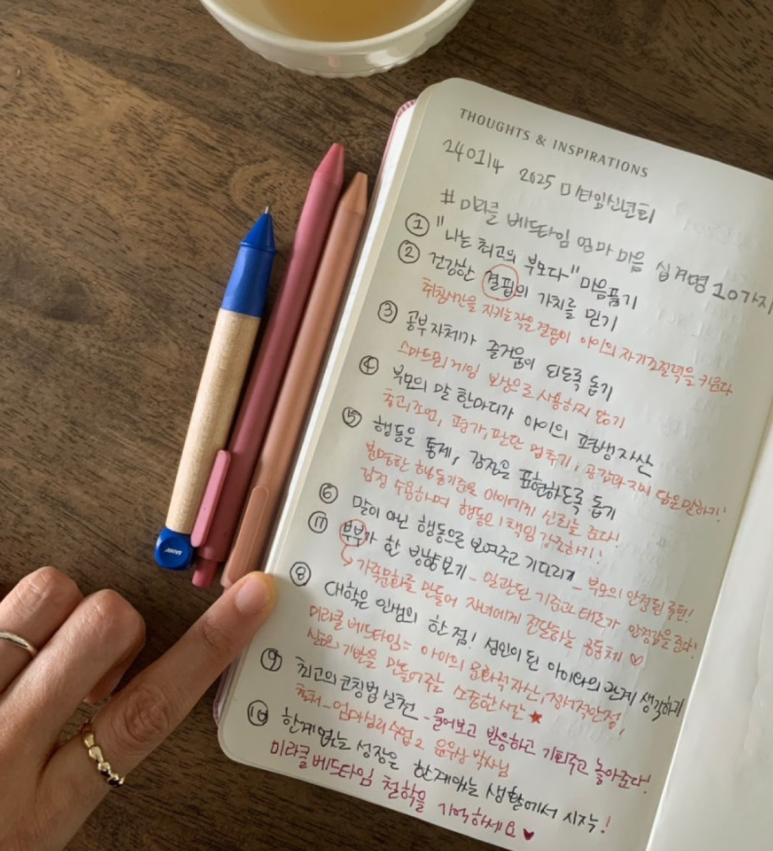 THOUGHTS & INSPIRATIONS
240114 2025 미타임신년회
# 미라클 베드타임 엄마 마음 십계명 10가지
① "나는 최고의 부모다" 마음품기
② 건강한 결핍의 가치를 믿기
취침시간을 지키는 작은 결핍이 아이의 자기조절력을 키운다
③ 공부 자체가 즐거움이 되도록 돕기
스마트폰, 게임 보상으로 사용하지 않기
④ 부모의 말 한마디가 아이의 평생 자산
충고, 조언, 평가, 판단 멈추기, 공감과 지지 담은 말하기!
⑤ 행동은 통제, 감정은 표현하도록 돕기
분명한 행동기준로 아이에게 신뢰를 준다!
감정 수용하며 행동의 책임 강조하기!
⑥ 말이 아닌 행동으로 보여주고 기다리기 - 부모의 안정된 루틴!
⑦ 부부가 한 방향보기 - 일관된 기준과 태도가 안정감을 준다!
↳ 가족문화를 만들어 자녀에게 전달하는 공동체 ♡
⑧ 대학은 인생의 한 점! 성인이 된 아이와의 관계 생각하기
미라클 베드타임 = 아이의 문화적 자산, 정서적 안정,
삶의 기반을 만들어주는 소중한 시간 ★
⑨ 최고의 코칭법 실천 - 물어보고 반응하고 기회주고 놓아준다!
출처 - 엄마심리수업 2 윤우상 박사님
⑩ 한계없는 성장은 한계있는 생활에서 시작!
미라클 베드타임 철학을 기억하세요 ♥